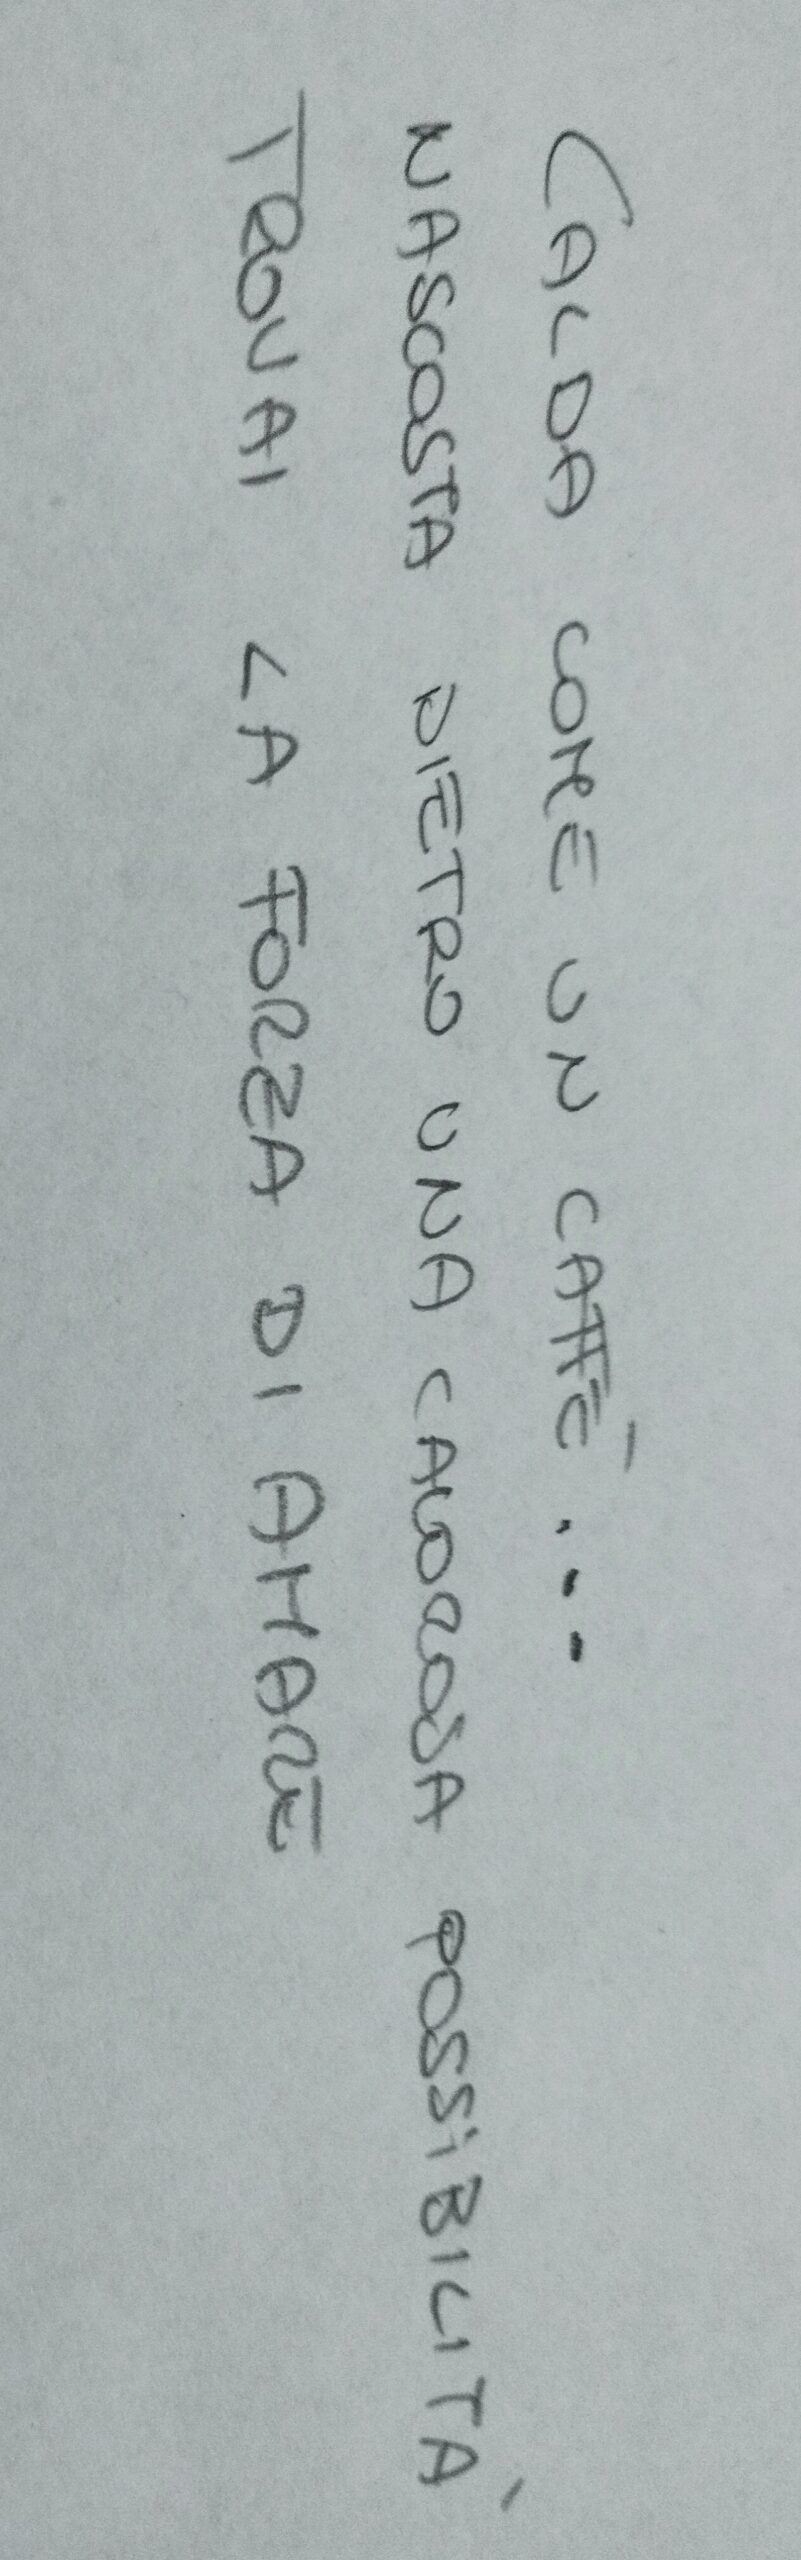 CALDA COME UN CAFFÈ...
NASCOSTA DIETRO UNA CALOROSA POSSiBILITÀ
TROVAI LA FORZA DI AMARE